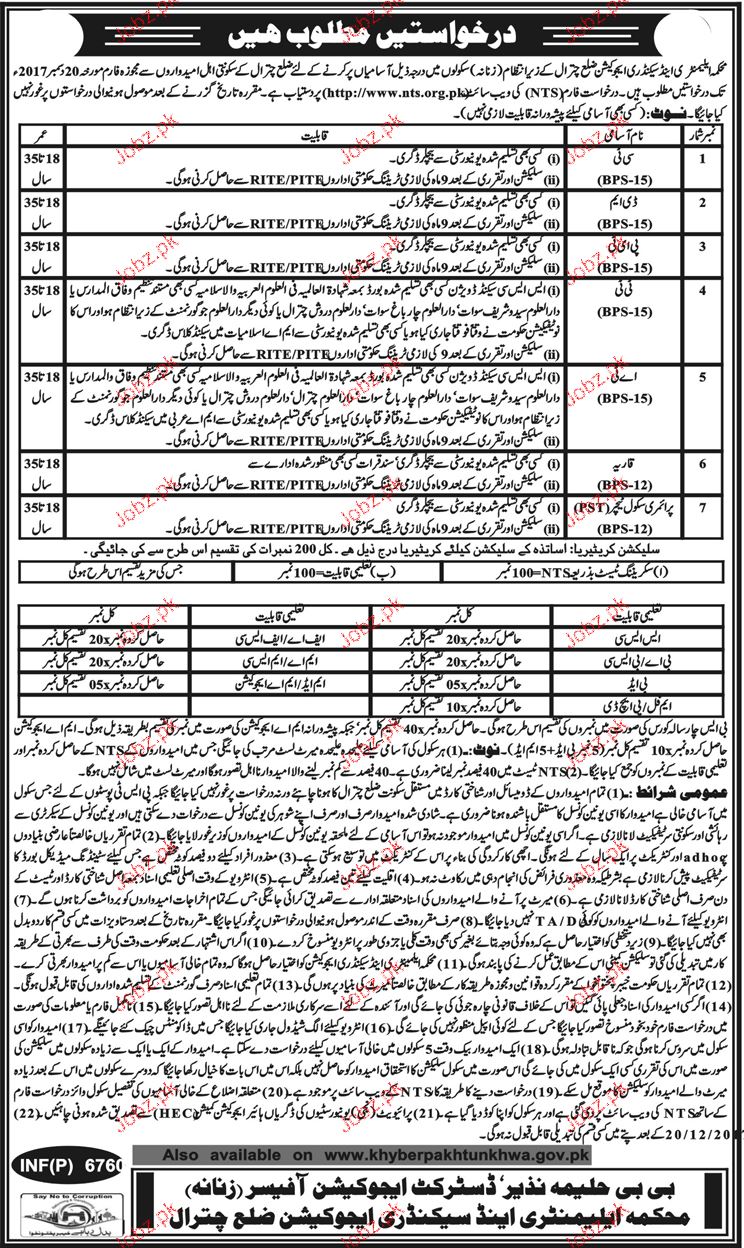 درخواستیں مطلوب ہیں
محکمہ ایلیمنٹری اینڈ سیکنڈری ایجوکیشن ضلع چترال کے زیر انتظام (زنانہ) سکولوں میں درجہ ذیل آسامیاں پر کرنے کے لئے ضلع چترال کے سکونتی اہل امیدواروں سے مجوزہ فارم مورخہ 20 دسمبر 2017ء
تک درخواستیں مطلوب ہیں۔ درخواست فارم (NTS) کی ویب سائٹ (http://www.nts.org.pk) پر دستیاب ہے۔ مقررہ تاریخ گزرنے کے بعد موصول ہونیوالی درخواستوں پر غور نہیں
کیا جائیگا۔ نوٹ: (کسی بھی آسامی کیلئے پیشہ ورانہ قابلیت لازمی نہیں)۔
نمبر شمار نام آسامی قابلیت عمر
1 سی ٹی (BPS-15) (i) کسی بھی تسلیم شدہ یونیورسٹی سے بیچلر ڈگری۔ 18 تا 35 سال
(ii) سلیکشن اور تقرری کے بعد 9 ماہ کی لازمی ٹریننگ حکومتی اداروں RITE/PITE سے حاصل کرنی ہوگی۔
2 ڈی ایم (BPS-15) (i) کسی بھی تسلیم شدہ یونیورسٹی سے بیچلر ڈگری۔ 18 تا 35 سال
(ii) سلیکشن اور تقرری کے بعد 9 ماہ کی لازمی ٹریننگ حکومتی اداروں RITE/PITE سے حاصل کرنی ہوگی۔
3 پی ای ٹی (BPS-15) (i) کسی بھی تسلیم شدہ یونیورسٹی سے بیچلر ڈگری۔ 18 تا 35 سال
(ii) سلیکشن اور تقرری کے بعد 9 ماہ کی لازمی ٹریننگ حکومتی اداروں RITE/PITE سے حاصل کرنی ہوگی۔
4 ٹی ٹی (BPS-15) (i) ایس ایس سی سیکنڈ ڈویژن کسی بھی تسلیم شدہ بورڈ بمعہ شہادۃ العالمیہ فی العلوم العربیہ والاسلامیہ کسی بھی مستند تنظیم وفاق المدارس یا 18 تا 35 سال
دارالعلوم سیدو شریف سوات، دارالعلوم چار باغ سوات، دارالعلوم دروش چترال یا کوئی دیگر دارالعلوم جو گورنمنٹ کے زیر انتظام ہو اور اس کا
نوٹیفکیشن حکومت نے وقتا فوقتا جاری کیا ہو یا کسی بھی تسلیم شدہ یونیورسٹی سے ایم اے اسلامیات میں سیکنڈ کلاس ڈگری۔
(ii) سلیکشن اور تقرری کے بعد 9 کی لازمی ٹریننگ حکومتی اداروں RITE/PITE سے حاصل کرنی ہوگی۔
5 اے ٹی (BPS-15) (i) ایس ایس سی سیکنڈ ڈویژن کسی بھی تسلیم شدہ بورڈ بمعہ شہادۃ العالمیہ فی العلوم العربیہ والاسلامیہ کسی بھی مستند تنظیم وفاق والمدارس یا 18 تا 35 سال
دارالعلوم سیدو شریف سوات، دارالعلوم چار باغ سوات، دارالعلوم چترال، دارالعلوم دروش چترال یا کوئی دیگر دارالعلوم جو گورنمنٹ کے
زیر انتظام ہو اور اس کا نوٹیفکیشن حکومت نے وقتا فوقتا جاری کیا ہو یا کسی بھی تسلیم شدہ یونیورسٹی سے ایم اے عربی میں سیکنڈ کلاس ڈگری۔
(ii) سلیکشن اور تقرری کے بعد 9 ماہ کی لازمی ٹریننگ حکومتی اداروں RITE/PITE سے حاصل کرنی ہوگی۔
6 قاریہ (BPS-12) (i) کسی بھی تسلیم شدہ یونیورسٹی سے بیچلر ڈگری، سند قرات کسی بھی منظور شدہ ادارے سے 18 تا 35 سال
(ii) سلیکشن اور تقرری کے بعد 9 ماہ کی لازمی ٹریننگ حکومتی اداروں RITE/PITE سے حاصل کرنی ہوگی۔
7 پرائمری سکول ٹیچر (PST) (BPS-12) (i) کسی بھی تسلیم شدہ یونیورسٹی سے بیچلر ڈگری 18 تا 35 سال
(ii) سلیکشن اور تقرری کے بعد 9 ماہ کی لازمی ٹریننگ حکومتی اداروں RITE/PITE سے حاصل کرنی ہوگی۔
سلیکشن کریٹیریا: اساتذہ کے سلیکشن کیلئے کریٹیریا درج ذیل ہے۔ کل 200 نمبرات کی تقسیم اس طرح سے کی جائیگی۔
(ا) سکریننگ ٹیسٹ بذریعہ NTS=100 نمبر (ب) تعلیمی قابلیت=100 نمبر جس کی مزید تقسیم اس طرح ہوگی
تعلیمی قابلیت کل نمبر تعلیمی قابلیت کل نمبر
ایس ایس سی حاصل کردہ نمبر x20 تقسیم کل نمبر ایف اے/ایف ایس سی حاصل کردہ نمبر x20 تقسیم کل نمبر
بی اے/بی ایس سی حاصل کردہ نمبر x20 تقسیم کل نمبر ایم اے/ایم ایس سی حاصل کردہ نمبر x20 تقسیم کل نمبر
بی ایڈ حاصل کردہ نمبر x05 تقسیم کل نمبر ایم ایڈ/ایم اے ایجوکیشن حاصل کردہ نمبر x05 تقسیم کل نمبر
ایم فل/پی ایچ ڈی حاصل کردہ نمبر x10 تقسیم کل نمبر
بی ایس چار سالہ کورس کی صورت میں نمبروں کی تقسیم اس طرح ہوگی۔ حاصل کردہ نمبر x40 تقسیم کل نمبر، جبکہ پیشہ ورانہ ایم اے ایجوکیشن کی صورت میں نمبر کی تقسیم بطریقہ ذیل ہوگی۔ ایم اے ایجوکیشن
حاصل کردہ نمبر x10 تقسیم کل نمبر (5 نمبر بی ایڈ+5 ایم ایڈ)۔ نوٹ:۔ (1) ہر سکول کی آسامی کیلئے علیحدہ علیحدہ میرٹ لسٹ مرتب کی جائیگی جس میں امیدواروں کے NTS کے حاصل کردہ نمبر اور
تعلیمی قابلیت کے نمبروں کو جمع کیا جائیگا۔ (2) NTS ٹیسٹ میں 40 فیصد نمبر لینا ضروری ہے۔ 40 فیصد سے کم نمبر لینے والا امیدوار نااہل تصور ہوگا اور میرٹ لسٹ میں شامل نہیں ہوگا۔
عمومی شرائط:۔ (1) تمام امیدواروں کے ڈومیسائل اور شناختی کارڈ میں مستقل سکونت ضلع چترال کا ہونا چاہئے ورنہ درخواست پر غور نہیں کیا جائیگا جبکہ پی ایس ٹی پوسٹوں کے لئے جس سکول
میں آسامی خالی ہے امیدوار کا اسی یونین کونسل کا مستقل باشندہ ہونا ضروری ہے۔ شادی شدہ امیدوار صرف اور صرف اپنے شوہر کی یونین کونسل سے درخواست دے سکتی ہیں اور یونین کونسل کے سیکرٹری سے
رہائشی اور سکونتی سرٹیفکیٹ لانا لازمی ہے۔ اگر اسی یونین کونسل میں امیدوار موجود نہ ہو تو اس آسامی کے لئے ملحقہ یونین کونسل کے امیدواروں کو زیر غور لایا جائیگا۔ (2) تمام تقرریاں خالصتا عارضی بنیادوں
adhoc اور کنٹریکٹ پر ایک سال کے لئے ہونگی۔ اچھی کارکردگی کی بناء پر اس کے کنٹریکٹ میں توسیع ہو سکتی ہے۔ (3) معذور افراد کیلئے دو فیصد کوٹہ مختص ہے جس کیلئے سٹینڈنگ میڈیکل بورڈ کا
سرٹیفکیٹ پیش کرنا لازمی ہے بشرطیکہ وہ معذوری فرائض کی انجام دہی میں رکاوٹ نہ ہو۔ (4) اقلیت کیلئے تین فیصد کوٹہ مختص ہے۔ (5) انٹرویو کے وقت اصلی تعلیمی اسناد بمعہ اصل شناختی کارڈ اور ٹیسٹ کے
دن صرف اصلی شناختی کارڈ لانا لازمی ہے۔ (6) میرٹ پر آنے والے امیدواروں کی اسناد متعلقہ ادارے سے تصدیق کرائی جائیگی جس کے تمام اخراجات امیدواروں کو برداشت کرنا ہوں گے۔ (7)
انٹرویو کیلئے آنے والے امیدواروں کو کوئی TA/DA نہیں دیا جائیگا۔ (8) صرف مقررہ وقت کے اندر موصول ہونیوالی درخواستوں پر غور کیا جائیگا۔ مقررہ تاریخ کے بعد دستاویزات میں کسی قسم کا ردوبدل
بھی نہیں کیا جائیگا۔ (9) زیر دستخطی کو اختیار حاصل ہے کہ وہ کوئی وجہ بتائے بغیر کسی بھی وقت کلی یا جزوی طور پر انٹرویو منسوخ کردے۔ (10) اگر اس اشتہار کے بعد حکومت وقت کی طرف سے بھرتی کے طریقہ
کار میں تبدیلی کی گئی تو سلیکشن کمیٹی اس کے مطابق عمل کرنے کی پابند ہوگی۔ (11) محکمہ ایلیمنٹری اینڈ سیکنڈری ایجوکیشن کو اختیار حاصل ہوگا کہ وہ تمام خالی آسامیوں یا اس سے کم پر امیدوار بھرتی کرے۔
(12) تمام تقرریاں حکومت خیبر پختونخوا کے مقرر کردہ قوانین و مجوزہ طریقہ کار کے مطابق خالصتا میرٹ کی بنیاد پر ہوں گی۔ (13) تمام تعلیمی اسناد صرف گورنمنٹ کے تسلیم شدہ اداروں کی قابل قبول ہونگی۔
(14) اگر کسی امیدوار کی اسناد جعلی پائی گئیں تو اس کے خلاف قانونی چارہ جوئی کی جائے گی اور آئندہ کے لئے اسے سرکاری ملازمت کے لئے نااہل تصور کیا جائیگا۔ (15) نامکمل فارم یا معلومات کی صورت
میں درخواست فارم خود بخود منسوخ تصور کیا جائیگا جس کے لئے کوئی اپیل منظور نہیں کی جائے گی۔ (16) انٹرویو کیلئے الگ شیڈول جاری کیا جائیگا جس میں ڈاکومنٹس چیک کئے جائینگے۔ (17) امیدوار کو اسی
سکول میں سروس کرنی ہوگی جو کہ ناقابل تبادلہ ہوگی۔ (18) ایک امیدوار بیک وقت 5 سکولوں میں خالی آسامیوں کیلئے درخواست دے سکتا ہے۔ امیدوار کے ایک یا ایک سے زیادہ سکولوں میں سلیکشن کی
صورت میں اس کی تقرری کسی ایک سکول میں کی جائے گی اس صورت میں سکول سلیکشن کا استحقاق امیدوار کو حاصل نہیں بلکہ اس میں اس بات کا خیال رکھا جائیگا کہ دوسرے سکولوں میں اس کے بعد زیادہ
میرٹ والے امیدوار کو سلیکشن کا موقع مل سکے۔ (19) درخواست دینے کا طریقہ کار NTS کے ویب سائٹ پر موجود ہے۔ (20) متعلقہ اضلاع کے خالی آسامیوں کی تفصیل سکول وائز درخواست فارم
کے ساتھ NTS کی ویب سائٹ پر دی گئی ہے اور ہر سکول کو اپنا کوڈ دیا گیا ہے۔ (21) پرائیویٹ (نجی) یونیورسٹیوں کی ڈگریاں ہائیر ایجوکیشن کمیشن (HEC) سے تصدیق شدہ ہونی چاہئیں۔ (22)
20/12/2017 کے بعد پتے میں کسی قسم کی تبدیلی قابل قبول نہ ہوگی۔
INF(P) 6760
Also available on www.khyberpakhtunkhwa.gov.pk
Say No to Corruption
بی بی حلیمہ نذیر، ڈسٹرکٹ ایجوکیشن آفیسر (زنانہ)
محکمہ ایلیمنٹری اینڈ سیکنڈری ایجوکیشن ضلع چترال
Jobz.pk